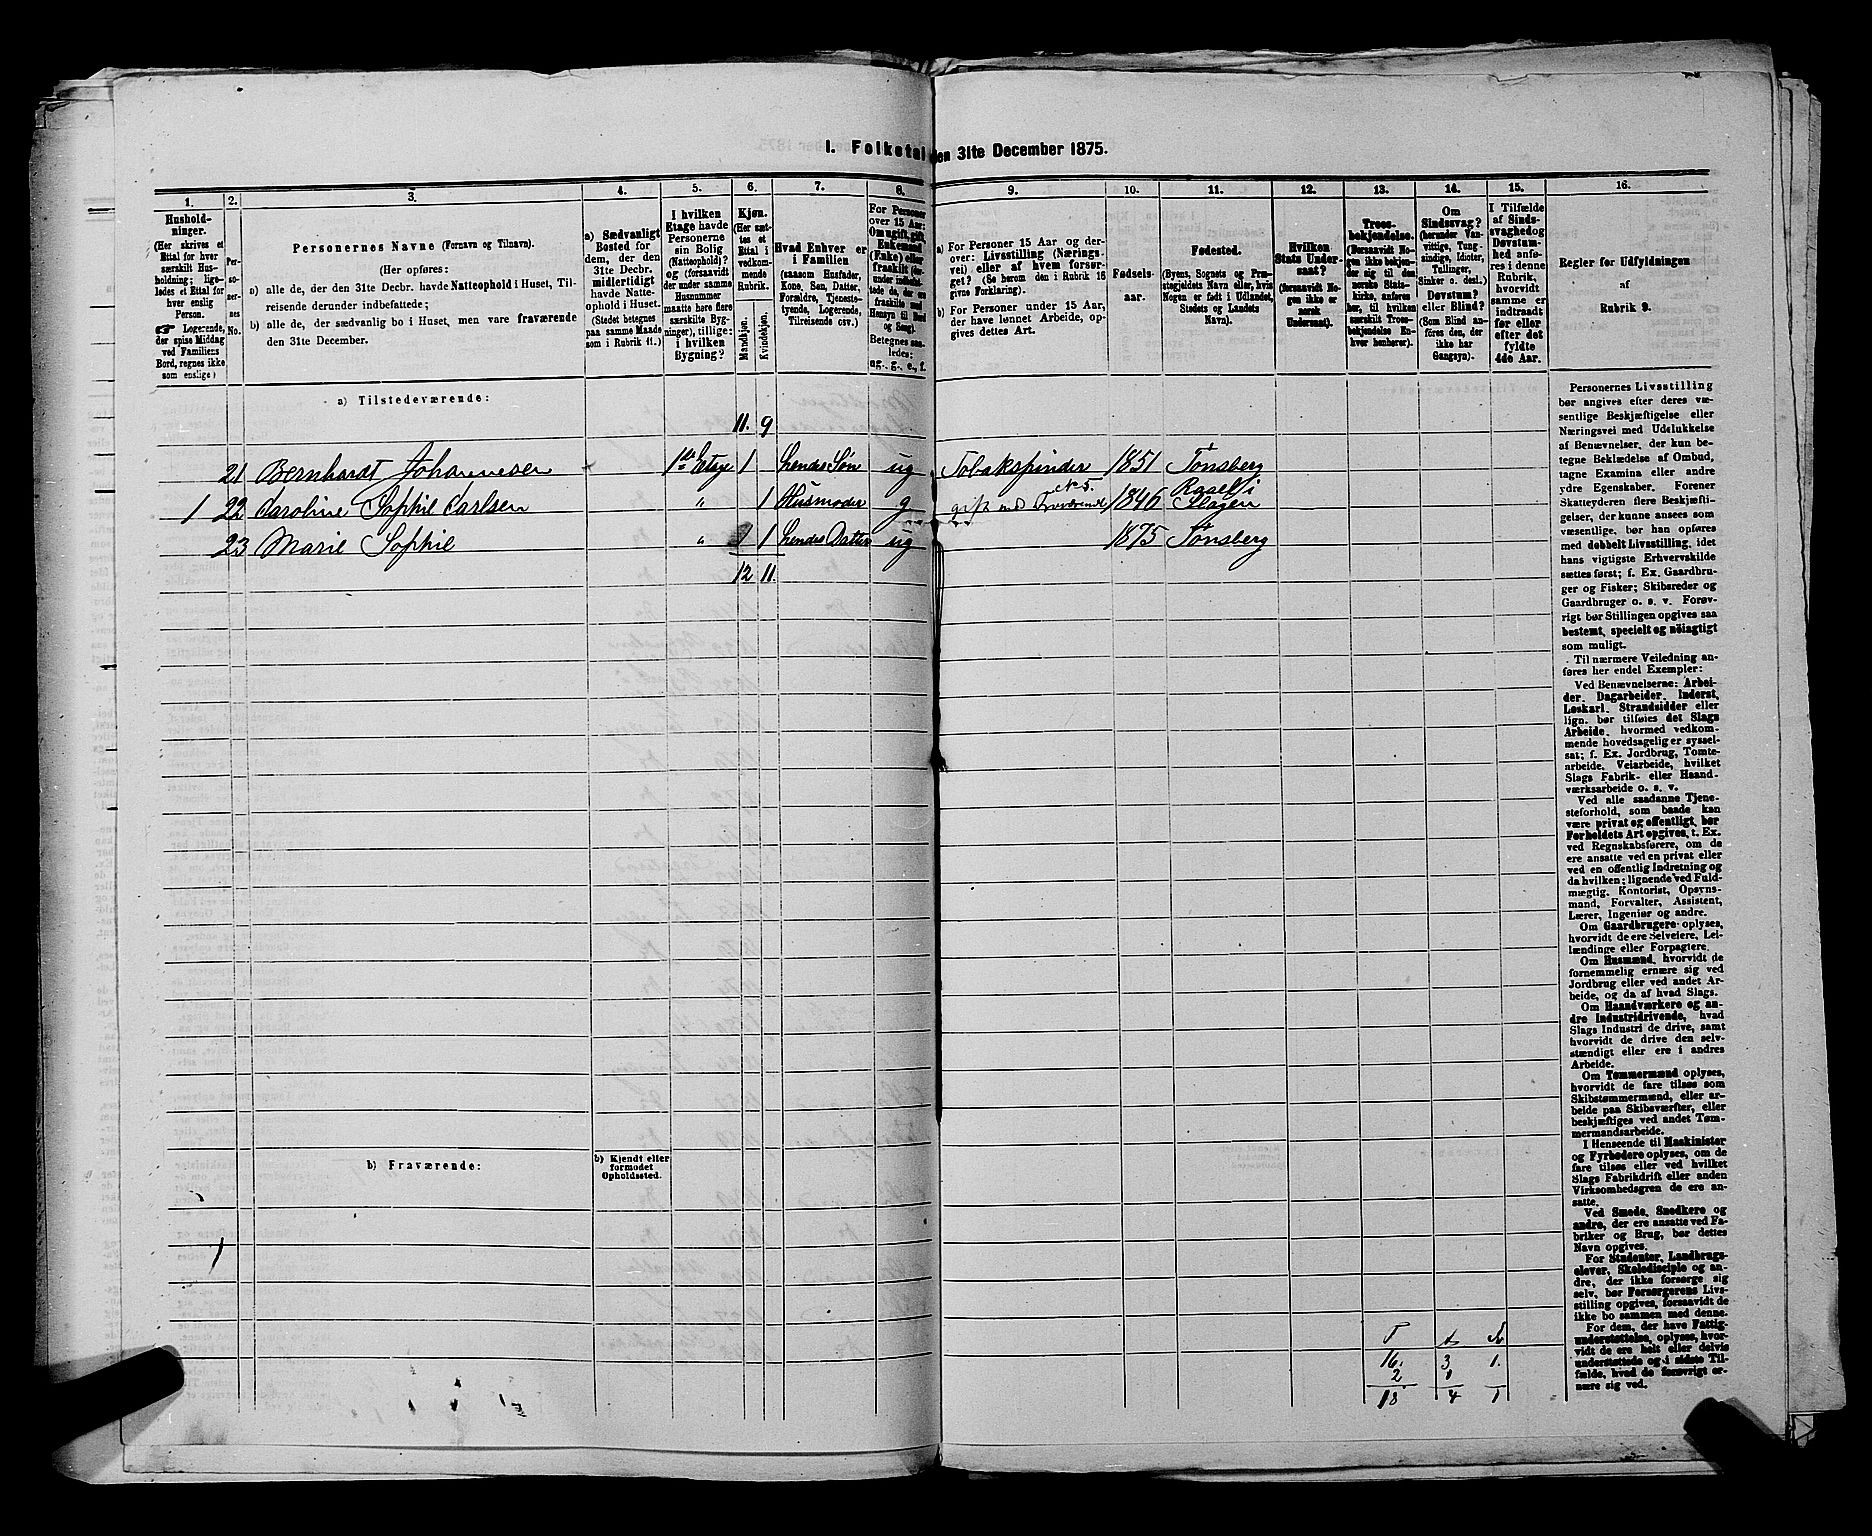 I. Folketal den 31te December 1875.
1. 2. 3. 4. 5. 6. 7. 8. 9. 10. 11. 12. 13. 14. 15. 16.
Hushold-
ninger.
(Her skrives et
Ettal for hver
særskilt Hus-
holdning; lige-
ledes et Ettal for
hver enslig
Person.
☞ Logerende,
der spise Middag
ved Familiens
Bord, regnes ikke
som enslige)
Per-
so-
ner-
nes
No.
Personernes Navne (Fornavn og Tilnavn).
(Her opføres:
a) alle de, der den 31te Decbr. havde Natteophold i Huset, Til-
reisende derunder indbefattede;
b) alle de, der sædvanlig bo i Huset, men vare fraværende
den 31te December.
a) Sædvanligt
Bosted for
dem, der den
31te Decbr.
midlertidigt
havde Natte-
ophold i Huset.
(Stedet betegnes
paa samme Maade
som i Rubrik 11.)
I hvilken
Etage havde
Personerne
sin Bolig
(Natteophold)?
og (forsaavidt
der under samme
Husnummer
maatte høre flere
særskilte Byg-
ninger), tillige:
i hvilken
Bygning?
Kjøn.
(Her sæt-
tes et
Ettal i
vedkom-
mende
Rubrik.
Mandkjøn.
Kvindekjøn.
Hvad Enhver er
i Familien
(saasom Husfader,
Kone, Søn, Datter,
Forældre, Tjeneste-
tyende, Logerende,
Tilreisende osv.)
For Personer
over 15 Aar:
Om ugift, gift,
Enkemand
(Enke) eller
fraskilt (der-
under indbefat-
tede de, der ere
fraskilte med
Hensyn til Bord
og Seng).
Betegnes saa-
ledes:
ug., g., e., f.
a) For Personer 15 Aar og der-
over: Livsstilling (Nærings-
vei) eller af hvem forsør-
get? (Se herom den i Rubrik 16
givne Forklaring).
b) For Personer under 15 Aar,
der have lønnet Arbeide, op-
gives dettes Art.
Fødsels-
aar.
Fødested.
(Byens, Sognets og Præ-
stegjeldets Navn eller, hvis
Nogen er født i Udlandet,
Stedets og Landets
Navn).
Hvilken
Stats Under-
saat?
(forsaavidt No-
gen ikke er
norsk
Undersaat).
Troes-
bekjendelse.
(Forsaavidt No-
gen ikke bekjen-
der sig til den
norske Stats-
kirke, anføres
her, til hvilken
særskilt Troes-
bekjendelse En-
hver henhører).
Om
Sindssvag?
(herunder Van-
vittige, Tung-
sindige, Idioter,
Tullinger,
Sinker o. desl.)
Døvstum?
eller Blind?
(Som Blind an-
føres den, der
ikke har
Gangsyn).
I Tilfælde
af Sinds-
svaghed og
Døvstum-
hed anfø-
res i denne
Rubrik,
hvorvidt
samme er
indtraadt
før eller
efter det
fyldte
4de Aar.
Regler for Udfyldningen
af
Rubrik 9.
a) Tilstedeværende:
11. 9
21 Bernhardt Johannesen 1ste Etage 1 hendes Søn ug Tobakspinder 1851 Tønsberg
1 22 Caroline Sophie Carlsen " 1 Husmoder g gift med Fraværende No 5. 1846 Slagen
23 Marie Sophie " 1 hendes Datter ug 1875 Tønsberg
12 11.
b) Fraværende:
b) Kjendt eller
formodet
Opholdssted.
1
16. 3 1.
2 1
18 4 1
Personernes Livsstilling
bør angives efter deres væ-
sentlige Beskjæftigelse eller
Næringsvei med Udelukkelse
af Benævnelser, der kun be-
tegne Beklædelse af Ombud,
tagne Examina eller andre
ydre Egenskaber. Forener
Skatteyderen flere Beskjæfti-
gelser, der kunne ansees som
væsentlige, bør han opføres
med dobbelt Livsstilling, idet
hans vigtigste Erhvervskilde
sættes først; f. Ex. Gaardbru-
ger og Fisker; Skibsreder og
Gaardbruger o. s. v. Forøv-
rigt bør Stillingen opgives saa
bestemt, specielt og nøiagtigt
som muligt.
Til nærmere Veiledning an-
føres her endel Exempler:
Ved Benævnelserne: Arbei-
der, Dagarbeider, Inderst,
Løskarl, Strandsidder eller
lign. bør tilføies det Slags
Arbeide, hvormed vedkom-
mende hovedsagelig er syssel-
sat; f. Ex. Jordbrug, Tomte-
arbeide, Veiarbeide, hvilket
Slags Fabrik- eller Haand-
værksarbeide o. s. v.
Ved alle saadanne Tjene-
steforhold, som baade kan
være privat og offentligt, bør
Forholdets Art opgives, t. Ex.
ved Regnskabsførere, om de
ere ansatte ved en privat eller
ved en offentlig Indretning og
da hvilken; lignende ved Fuld-
mægtig, Kontorist, Opsyns-
mand, Forvalter, Assistent,
Lærer, Ingeniør og andre.
Om Gaardbrugere oplyses,
hvorvidt de ere Selveiere, Lei-
lændinge eller Forpagtere.
Om Husmænd, hvorvidt de
fornemmelig ernære sig ved
Jordbrug eller ved andet Ar-
beide, og da af hvad Slags.
Om Haandværkere og an-
dre Industridrivende, hvad
Slags Industri de drive, samt
hvorvidt de drive den selv-
stændigt eller ere i andres
Arbeide.
Om Tømmermænd oplyses,
hvorvidt de fare tilsøs som
Skibstømmermænd, eller ar-
beide paa Skibsværfter, eller
beskjæftiges ved andet Tøm-
mermandsarbeide.
I Henseende til Maskinister
og Fyrbødere oplyses, om de
fare tilsøs eller ved hvilket
Slags Fabrikdrift eller anden
Virksomhedsgren de ere an-
satte.
Ved Smede, Snedkere og
andre, der ere ansatte ved Fa-
briker og Brug, bør dettes
Navn opgives.
For Studenter, Landbrugs-
elever, Skoledisciple og an-
dre, der ikke forsørge sig
selv, bør Forsørgerens Livs-
stilling opgives, forsaavidt de
ikke bo sammen med denne.
For dem, der have Fattig-
understøttelse, oplyses, hvor-
vidt de ere helt eller delvis
understøttede og i sidste Til-
fælde, hvad de forøvrigt er-
nære sig ved.